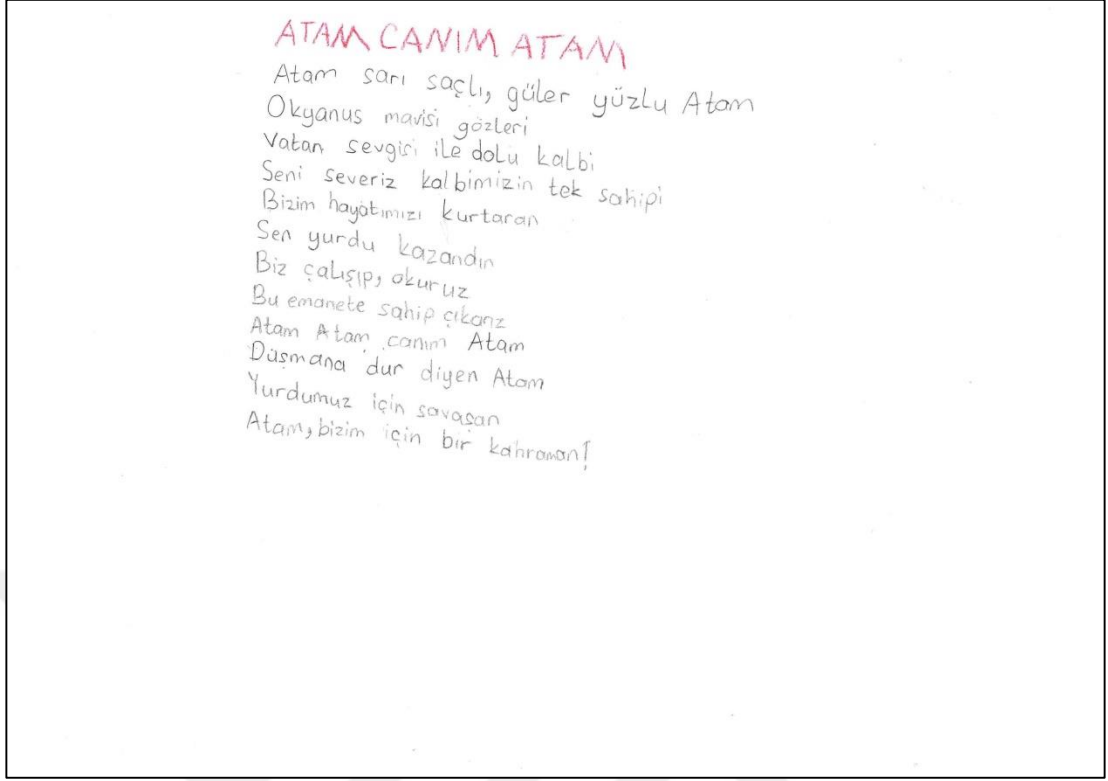 ATAM CANIM ATAM
Atam sarı saçlı, güler yüzlu Atam
Okyanus mavisi gözleri
Vatan sevgisi ile dolu kalbi
Seni severiz kalbimizin tek sahipi
Bizim hayatımızı kurtaran
Sen yurdu kazandın
Biz çalışıp, okuruz
Bu emanete sahip çıkarız
Atam Atam canım Atam
Düşmana dur diyen Atam
Yurdumuz için savaşan
Atam, bizim için bir kahraman!